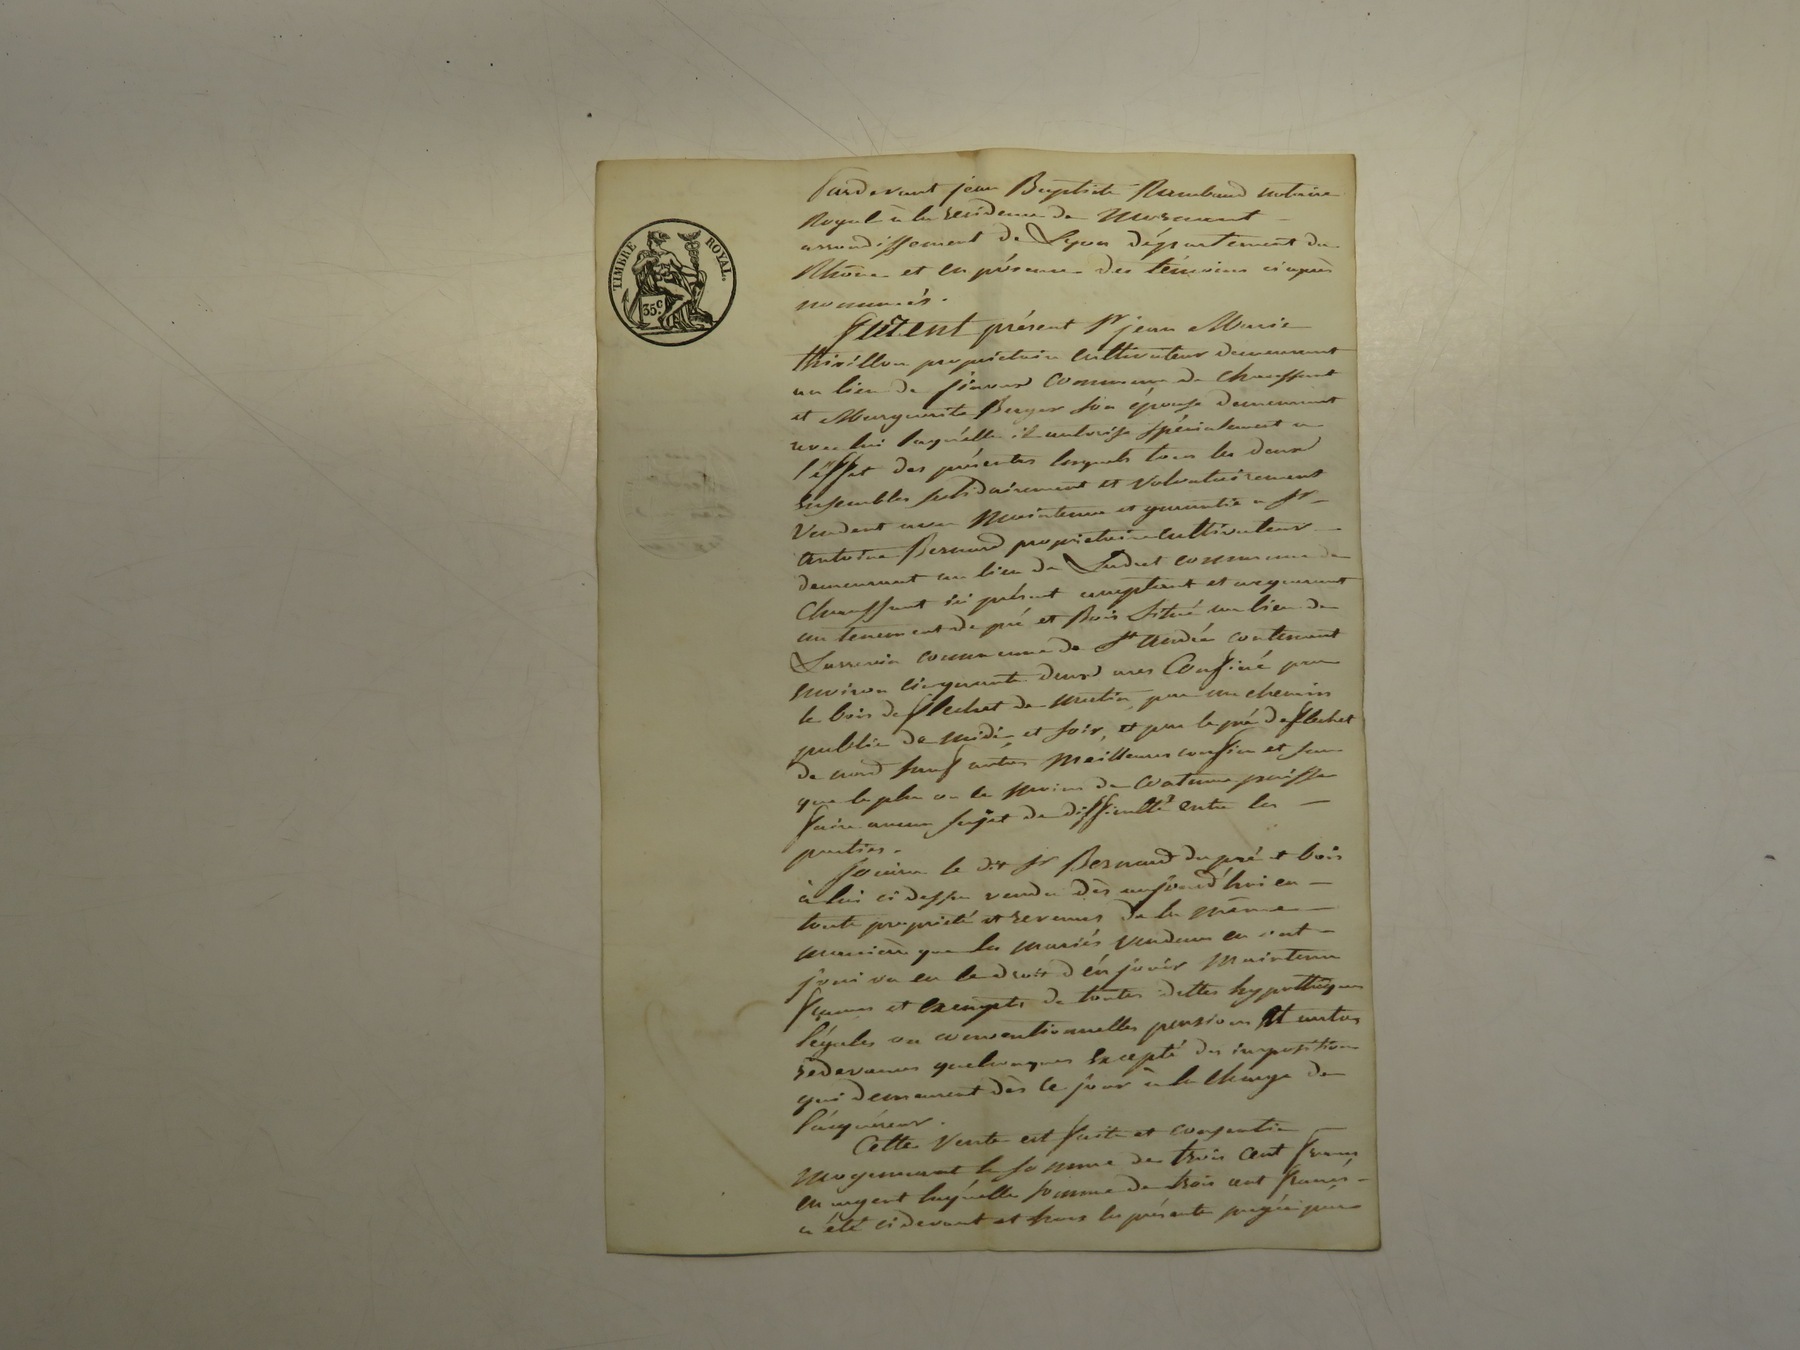 TIMBRE ROYAL.
35c.
Pardevant jean Baptiste Rambaud notaire
Royal à la residence de Mornant
arrondissement de Lyon département du
Rhône et en présence des témoins ci après
nommés.
Furent présent Sr jean Marie
thivillon propriétaire cultivateur demeurant
au lieu de commune de Chaussant
et Marguerite Berger son épouse demeurant
avec lui laquelle il autorise spécialement a
l'éffet des présentes lesquels tous les deux
Ensembles solidairement et volontairement
Vendent avec Maintenue et garantie a Sr
antoine Bernard propriétaire cultivateur
demeurant au lieu de commune de
Chaussant ici présent acceptant et acquerant
un tenement de pré et Bois Situé au lieu de
commune de St andéol contenant
environ cinquante deux ares Confiné par
le bois de flechet de matin, par un chemin
public de midi et soir, et par le pré de flechet
de nord sauf autres Meilleurs confins et sans
que le plus ou le moins de contenue puisse
faire aucun sujet de difficulté entre les
parties.
Jouira le dit Sr Bernard du pré et bois
à lui ci dessus vendu dès aujourd'hui en
toute propriété et revenus de la même
manière que les mariés vendeurs en ont
joui ou eu le droit d'en jouir Maintenu
francs et exempts de toutes dettes hypothèques
légales ou conventionnelles pensions Et autres
redevances quelconques Excepté des impositions
qui demeurent dès ce jour à la Charge de
l'acquéreur.
Cette Vente est faite et consentie
moyennant la somme de trois cent francs
en argent laquelle somme de trois cent francs
a été ci devant et hors les présentes payée par